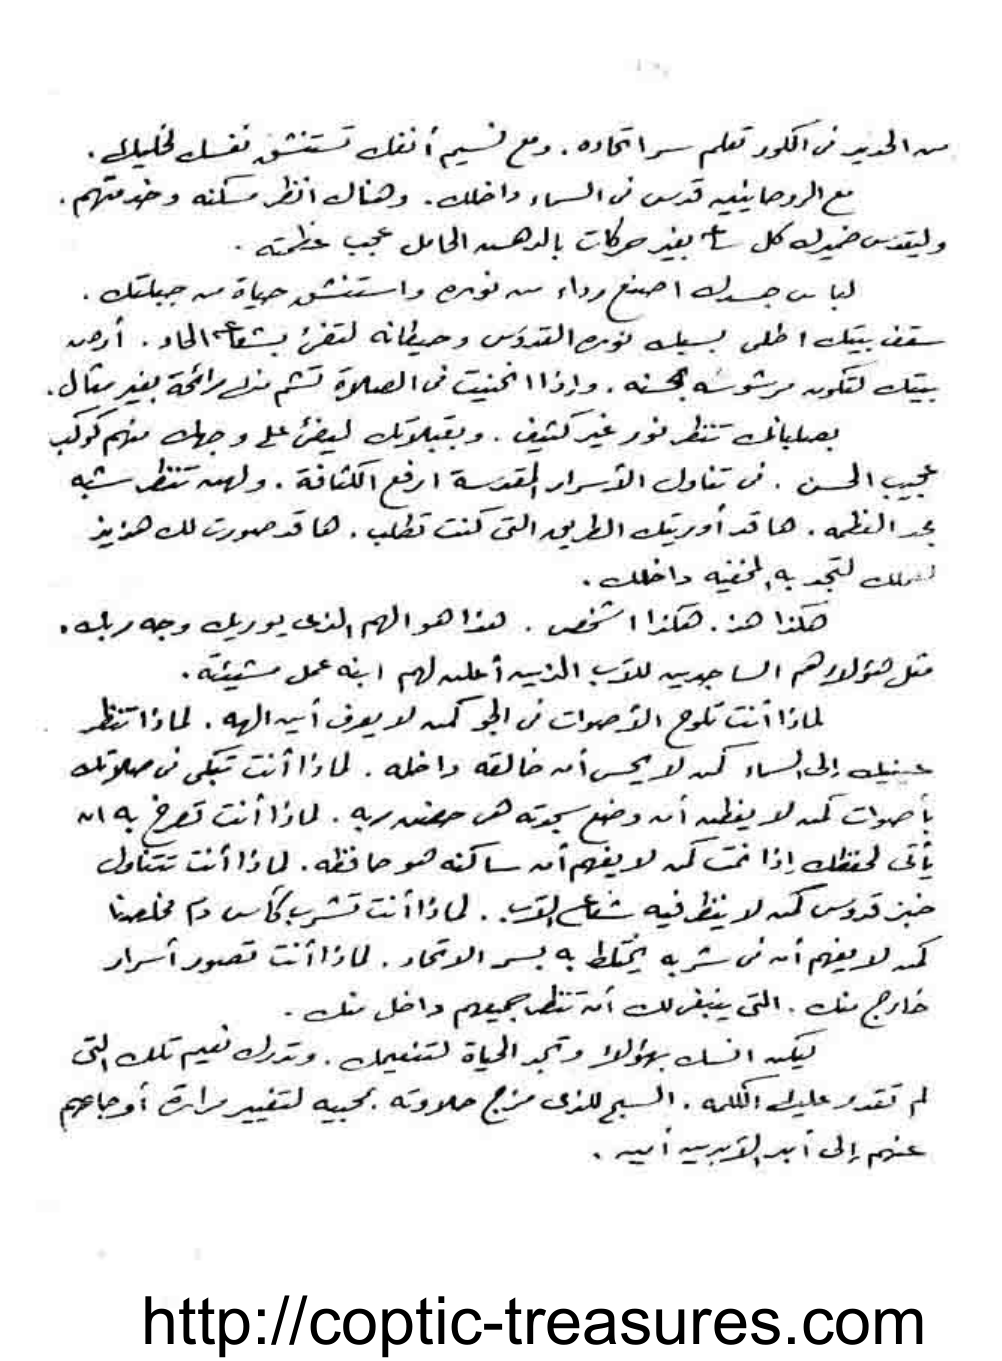 من الحديد فى الكور تعلم سر اتحاده. ومع نسيم أنفك تستنشق نفسك لخليلك.
مع الروحانيين قدس فى السماء داخلك. وهناك انظر مسكنه وخدمتهم.
وليقدس ضميرك كل بغير حركات بالدهش الحامل عجب عظمته.
لباس جسدك اصنع رداء من نوره واستنشق حياة من جبلتك.
سقف بيتك اطلى بسبك نوره القدوس وحيطانه لتضئ بشعاعه الحاد. أرض
بيتك لتكون مرشوشه بحسنه. وإذا انحنيت فى الصلاة تشم منك رائحة بغير مثال.
بصلبانك تنظر نور غير كثيف. وبقبلاتك ليضئ على وجهك منهم كوكب
عجيب الحسن. فى تناول الأسرار المقدسة ارفع الكثافة. ولهن تنظر شبه
مجد العظمه. ها قد أوريتك الطريق التى كنت تطلب. ها قد صورت لك هذيذ
لتجد به المخفيه داخلك.
هكذا هذ. هكذا اشخص. هذا هو الهم الذى يوريك وجه ربك.
مثل هؤلاء هم الساجدين للآب الذين أعلن لهم ابنه عمل مشيئته.
لماذا أنت تلوح الأصوات فى الجو كمن لا يعرف أين الهه. لماذا تنظر
عينيك إلى السماء كمن لا يحس أن خالقه داخله. لماذا أنت تبكى فى صلاتك
بأصوات كمن لا يفطن أن وضع سجدته هى حضن ربه. لماذا أنت تصرخ به ان
يأتى لحفظك إذا نمت كمن لا يفهم أن ساكنه هو حافظه. لماذا أنت تتناول
خبز قدوس كمن لا ينظر فيه شعاع الآب. لماذا أنت تشرب كأس دم مخلصنا
كمن لا يفهم أن فى شربه يختلط به بسر الاتحاد. لماذا أنت تصور أسرار
خارج منك. التى ينبغى لك أن تنظر جميعهم داخل منك.
ليكن انسك بهؤلاء وتجد الحياة لتنعيمك. وتدرك نعيم تلك التى
لم تقدر عليك الكلمه. السبح للذى مزج حلاوته بمحبيه لتغيير مرارة أوجاعهم
عنهم إلى أبد الآبدين أمين.
http://coptic-treasures.com